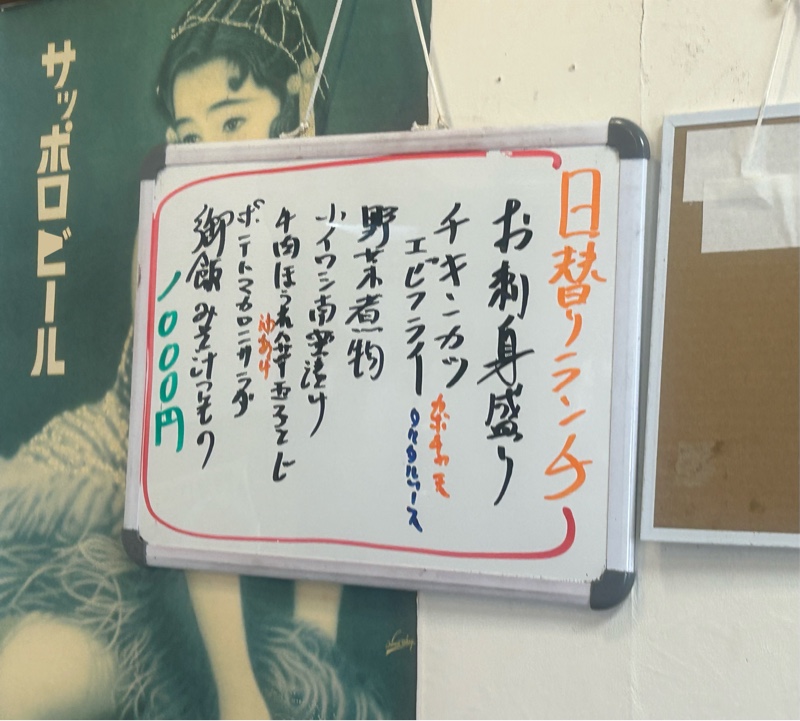 日替りランチ
お刺身盛り
チキンカツ
カボチャ天
エビフライ
タルタルソース
野菜煮物
小イワシ南蛮漬け
牛肉ほうれん草玉子とじ
油あげ
ポテトマカロニサラダ
御飯みそ汁つもの
1000円
サッポロビール